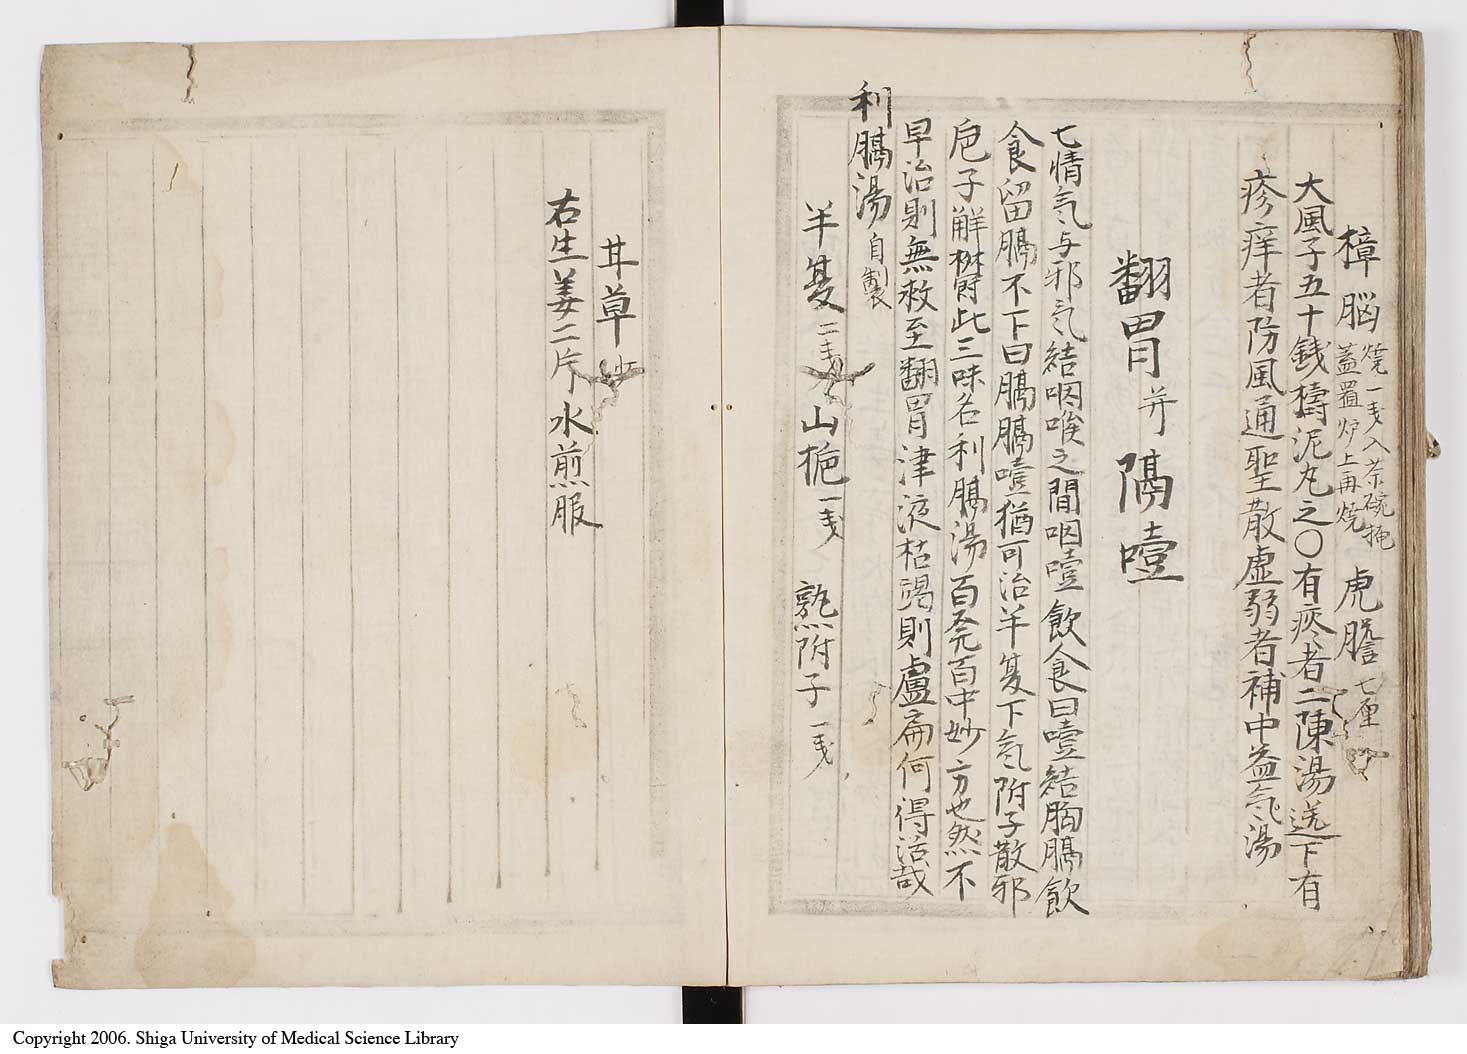 樟脳 焼一戔入茶碗掩蓋置炉上再焼 虎膽 七厘
大風子五十銭檮泥丸之〇有痰者二陳湯送下有
疹痒者防風通聖散虚弱者補中益気湯
翻胃并隔噎
七情気与邪気結咽喉之間咽噎飲食曰噎結胸膈飲
食留膈不下曰膈膈噎猶可治羊夐下気附子散邪
巵子解欝此三味名利膈湯百発百中妙方也然不
早治則無救至翻胃津液枯竭則盧扁何得活哉
利膈湯 自製
羊夐 二戔 山梔 一戔 熟附子 一戔
甘草
右生姜二片水煎服
Copyright 2006. Shiga University of Medical Science Library